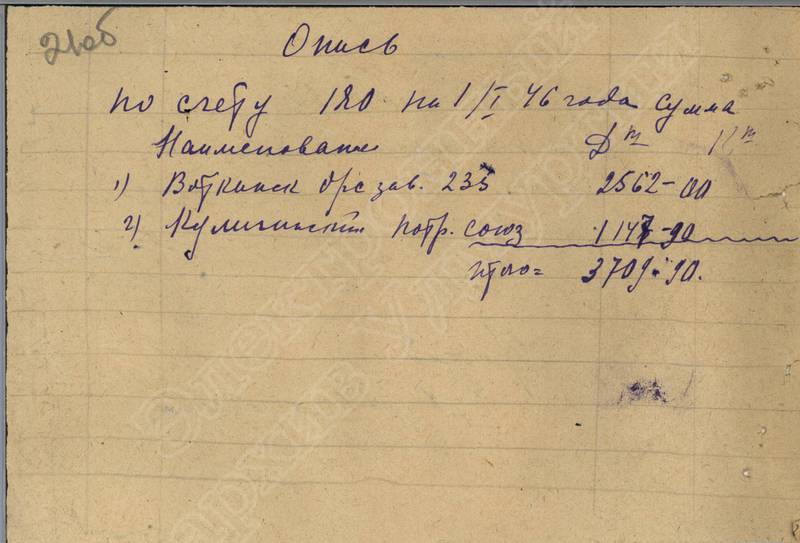 21об
Опись
по счету 180 на 1/I 46 года сумма
Наименование Дт Кт
1) Воткинск Орс зав. 235 2562-00
2) Кулигинский потр. союз 1147-90
Итого= 3709-90.